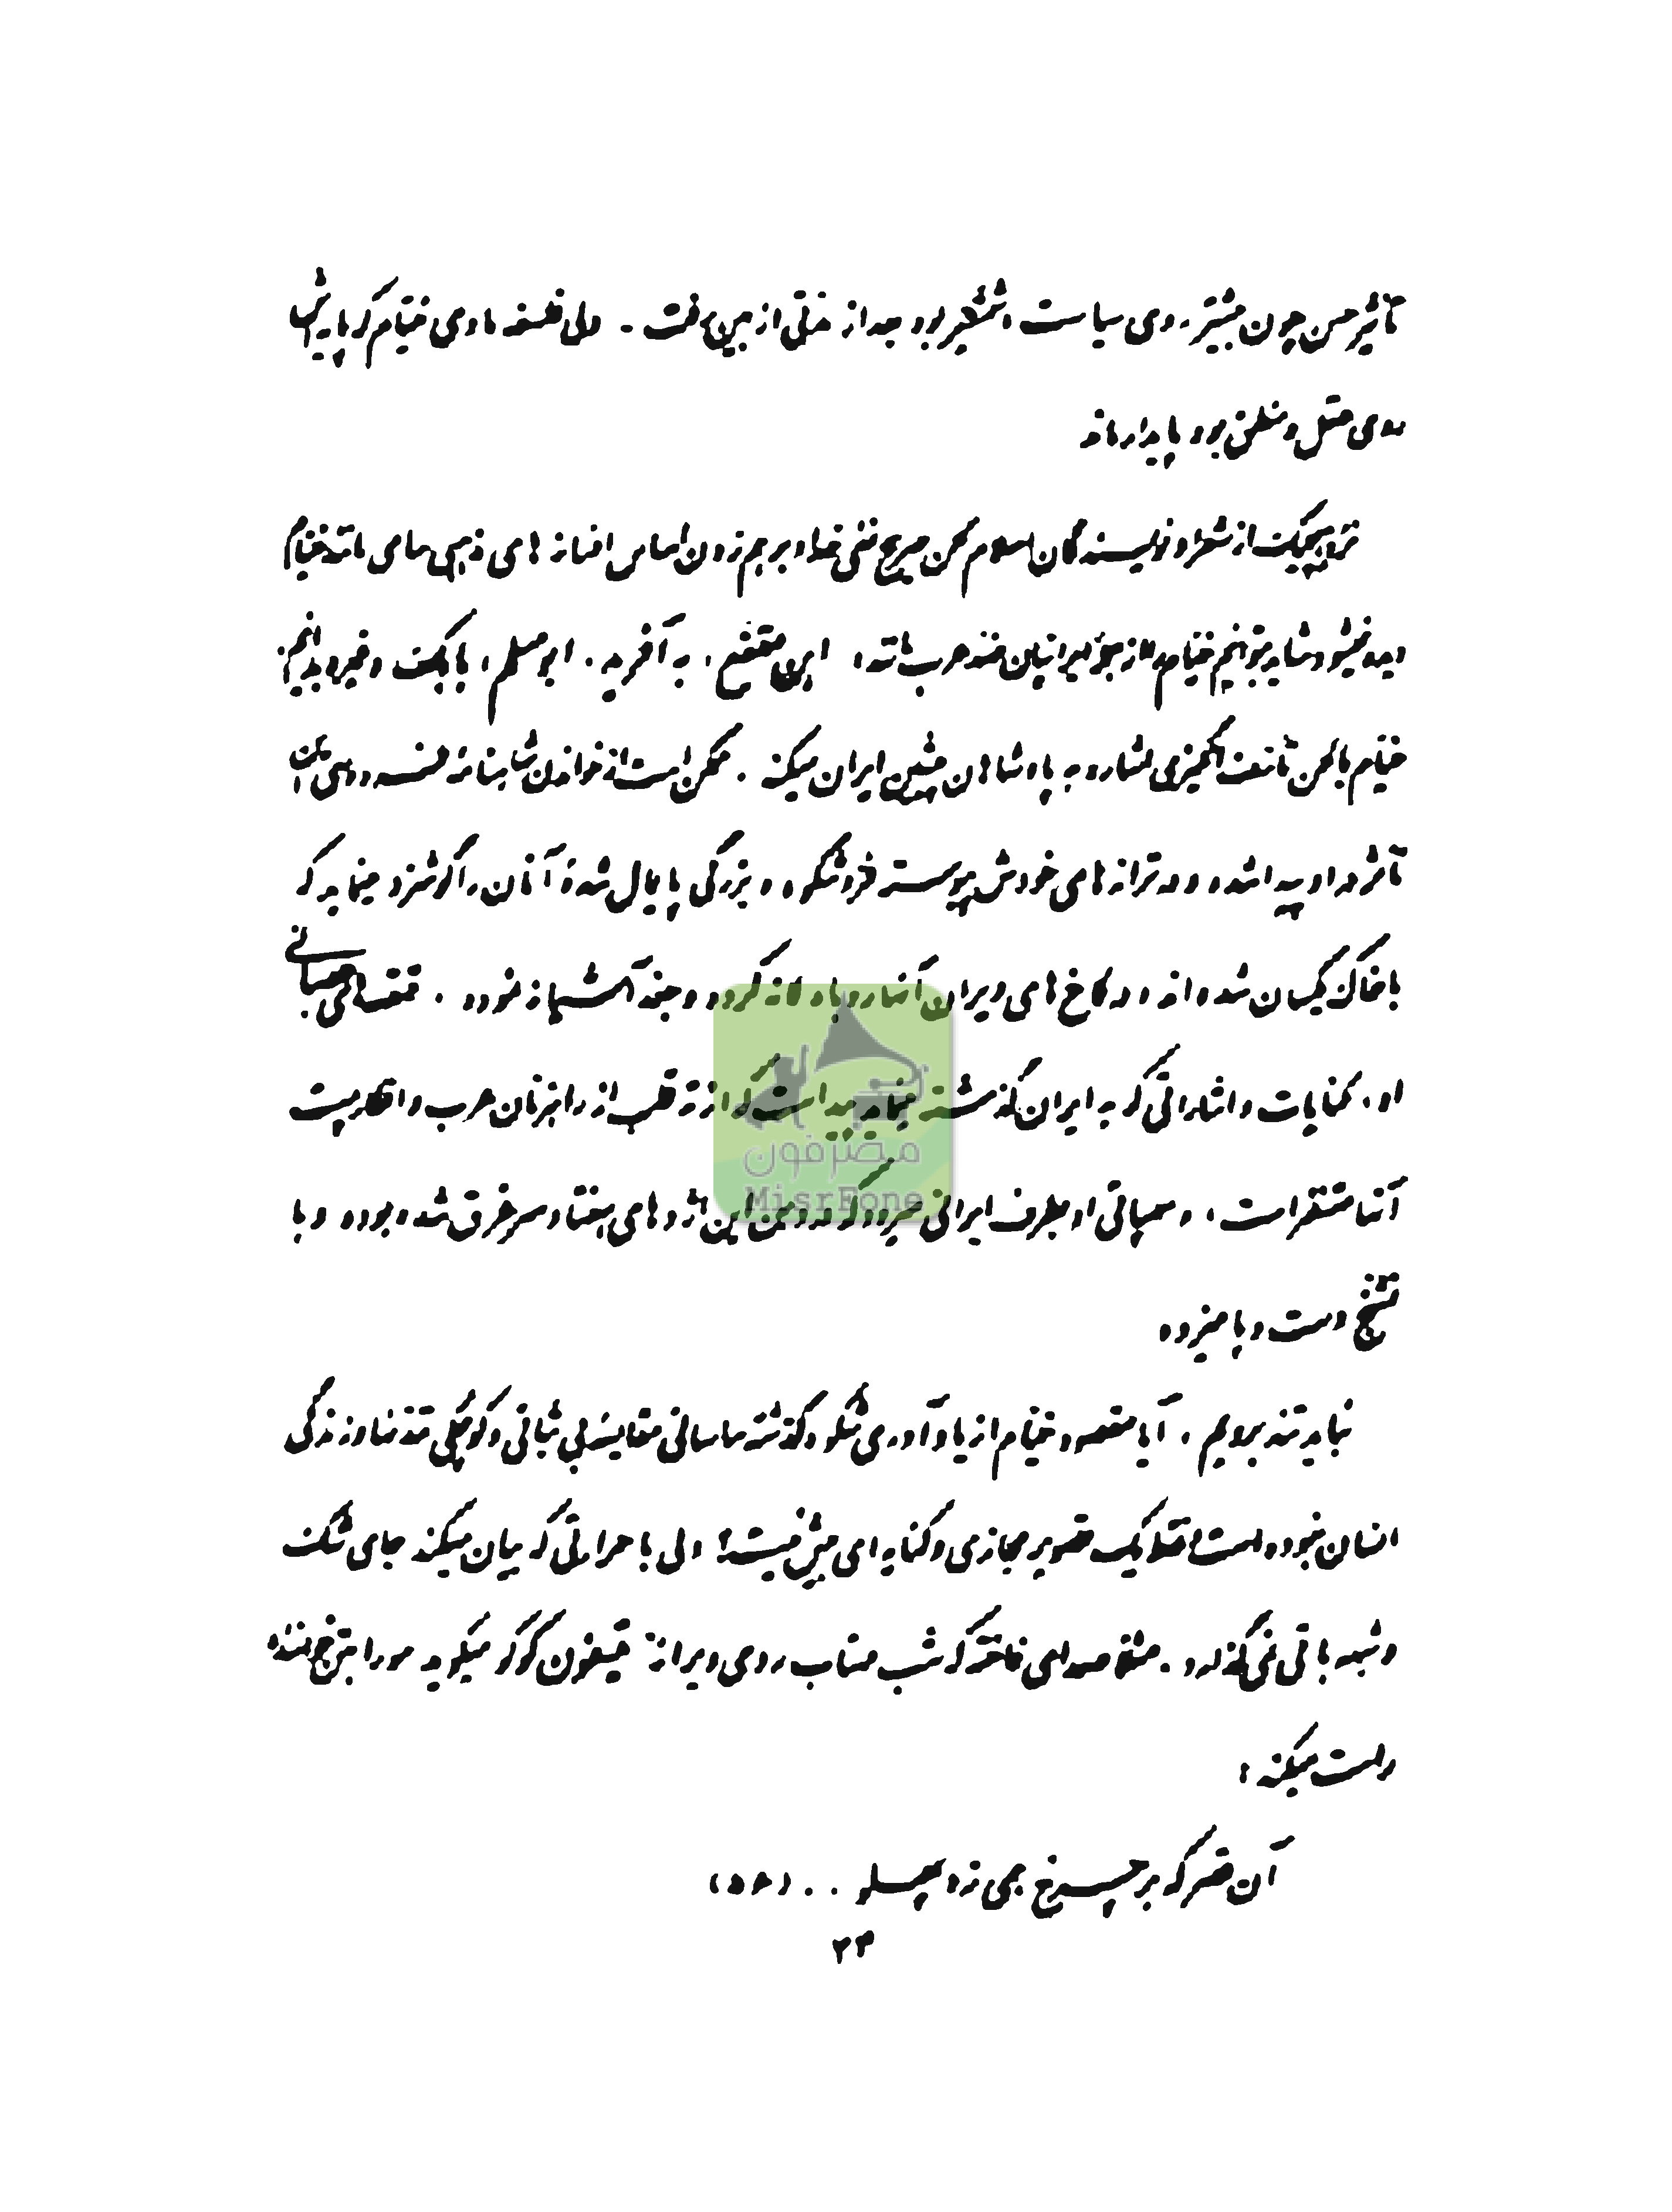 تأثیر حسن چون بیشتر روی سیاست و شمشیر بود بعد از مدتی از بین رفت . ولی فلسفه مادی خیام که پایه‌اش
روی عقل و منطق بود پایدار ماند
نزد هیچیک از شعرا و نویسندگان اسلام لحن صریح نفی خدا و برهم زدن اساس افسانه های مذهبی سامی مانند خیام
دیده نمیشود شاید بتوانیم خیام را از جمله ایرانیان ضد عرب مانند : ابن مقفع ، به آفرید ، ابومسلم ، بابک و غیره بدانیم.
خیام با لحن تأسف انگیزی اشاره به پادشاهان پیشین ایران میکند . ممکن است از خواندن شاهنامه فردوسی این
تأثر در او پیدا شده و در ترانه های خودش پیوسته فر و شکوه و بزرگی پایمال شدهٔ آنان را گوشزد مینماید که
با خاک یکسان شده اند و در کاخ های ویران آنها روباه لانه کرده و جغد آشیانه نموده . قهقهه‌های عصبانی
او ، کنایات و اشاراتی که به ایران گذشته مینماید پیداست که از ته قلب از راهزنان عرب و افکار پست
آنها متنفر است ، و سمپاتی او بطرف ایرانی میرود که در دهن این اژدهای هفتاد سر غرق شده بوده و با
تشنج دست و پا میزده
نباید تند برویم ، آیا مقصود خیام از یادآوری شکوه گذشته ساسانی مقایسه بی ثباتی و کوچکی تمدنها و زندگی
انسان نبوده است و فقط یک تصویر مجازی و کنایه ای بیش نیست؟ ولی با حرارتی که بیان میکند جای شک
و شبهه باقی نمی گذارد . مثلا صدای فاخته که شب مهتاب روی ویرانه تیسفون کوکو میگوید مو را بتن خواننده
راست میکند :
آن قصر که بر چرخ همی زد پهلو . . . (۵۶)
۲۳
MisrFone
مصرفون